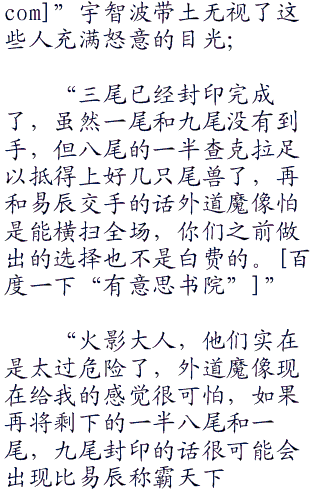 com]”宇智波带土无视了这
些人充满怒意的目光;
“三尾已经封印完成
了，虽然一尾和九尾没有到
手，但八尾的一半查克拉足
以抵得上好几只尾兽了，再
和易辰交手的话外道魔像怕
是能横扫全场，你们之前做
出的选择也不是白费的。[百
度一下“有意思书院”]”
“火影大人，他们实在
是太过危险了，外道魔像现
在给我的感觉很可怕，如果
再将剩下的一半八尾和一
尾，九尾封印的话很可能会
出现比易辰称霸天下